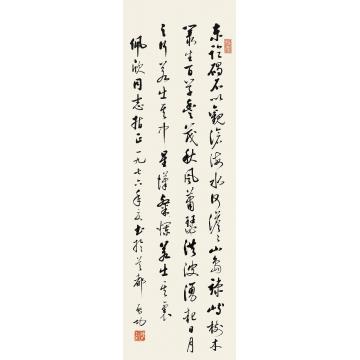 東臨碣石以觀滄海水何澹〻山島竦峙樹木
叢生百草豐茂秋風蕭瑟洪波湧起日月
之行若出其中星漢粲爛若出其裏
佩同志指正一九七六年夏書於首都 啟功